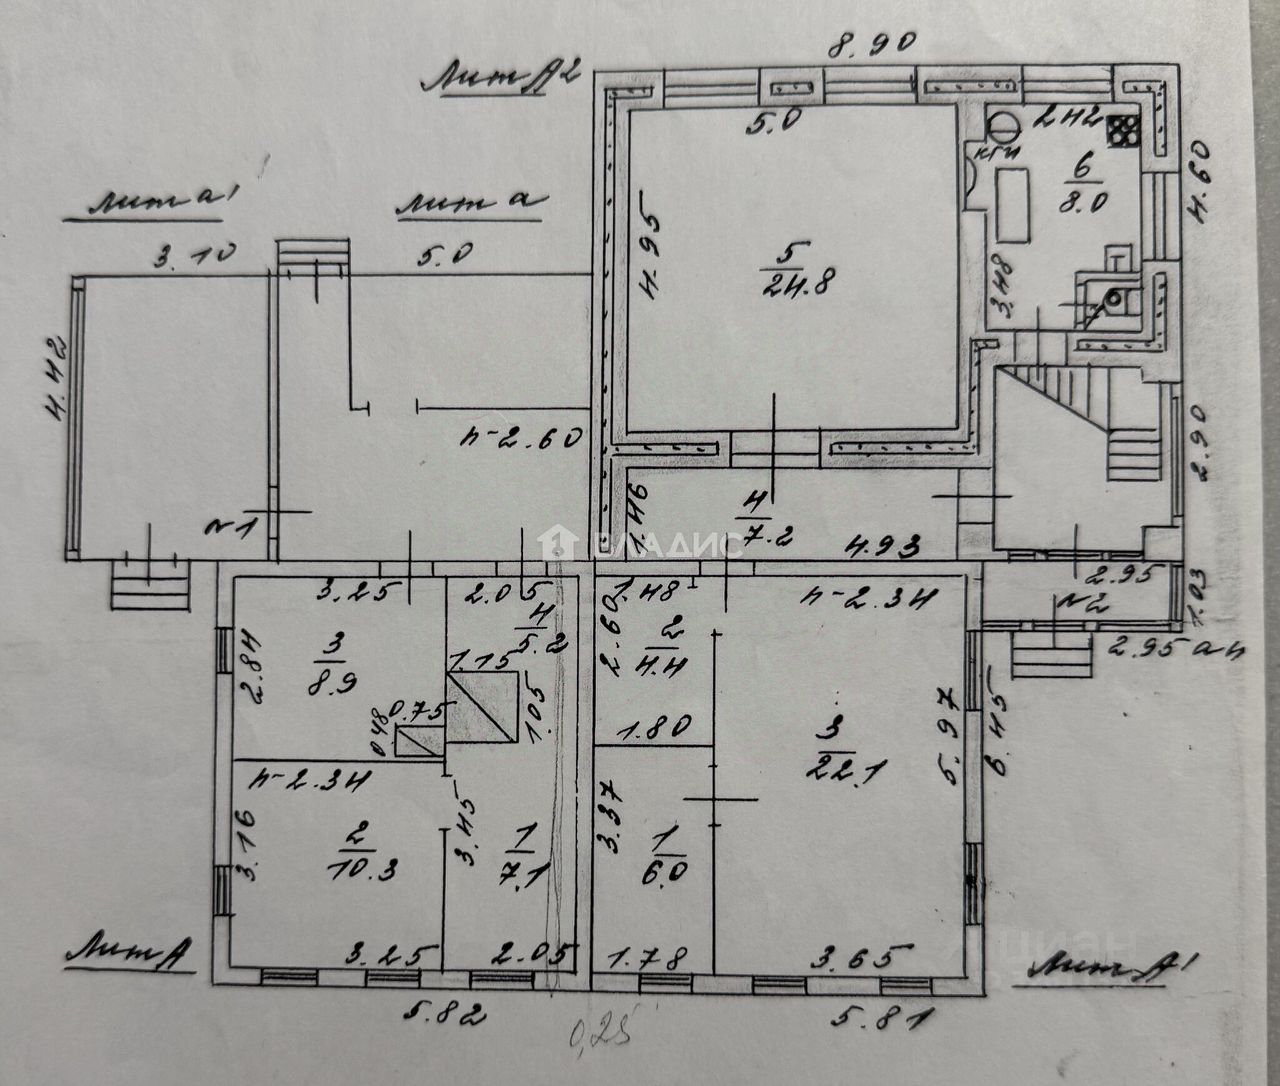 8.90
Лит А2
5.0
2.42
КГИ
6
8.0
4.60
Лит а1
Лит а
4.95
3.10
5.0
5
24.8
3.48
4.42
h-2.60
2.90
№1
1.46
4
7.2
4.93
ВЛАДИС
2.95
1.03
№2
2.95
3.25
2.05
1.48
h-2.34
4
5.2
2.60
2
4.4
2.84
3
8.9
1.15
1.05
0.75
0.48
1.80
3
22.1
5.97
6.45
h-2.34
3.16
2
10.3
3.45
1
7.1
3.37
1
6.0
Лит А
3.25
2.05
1.78
3.65
циан
Лит А1
5.82
0,25
5.81